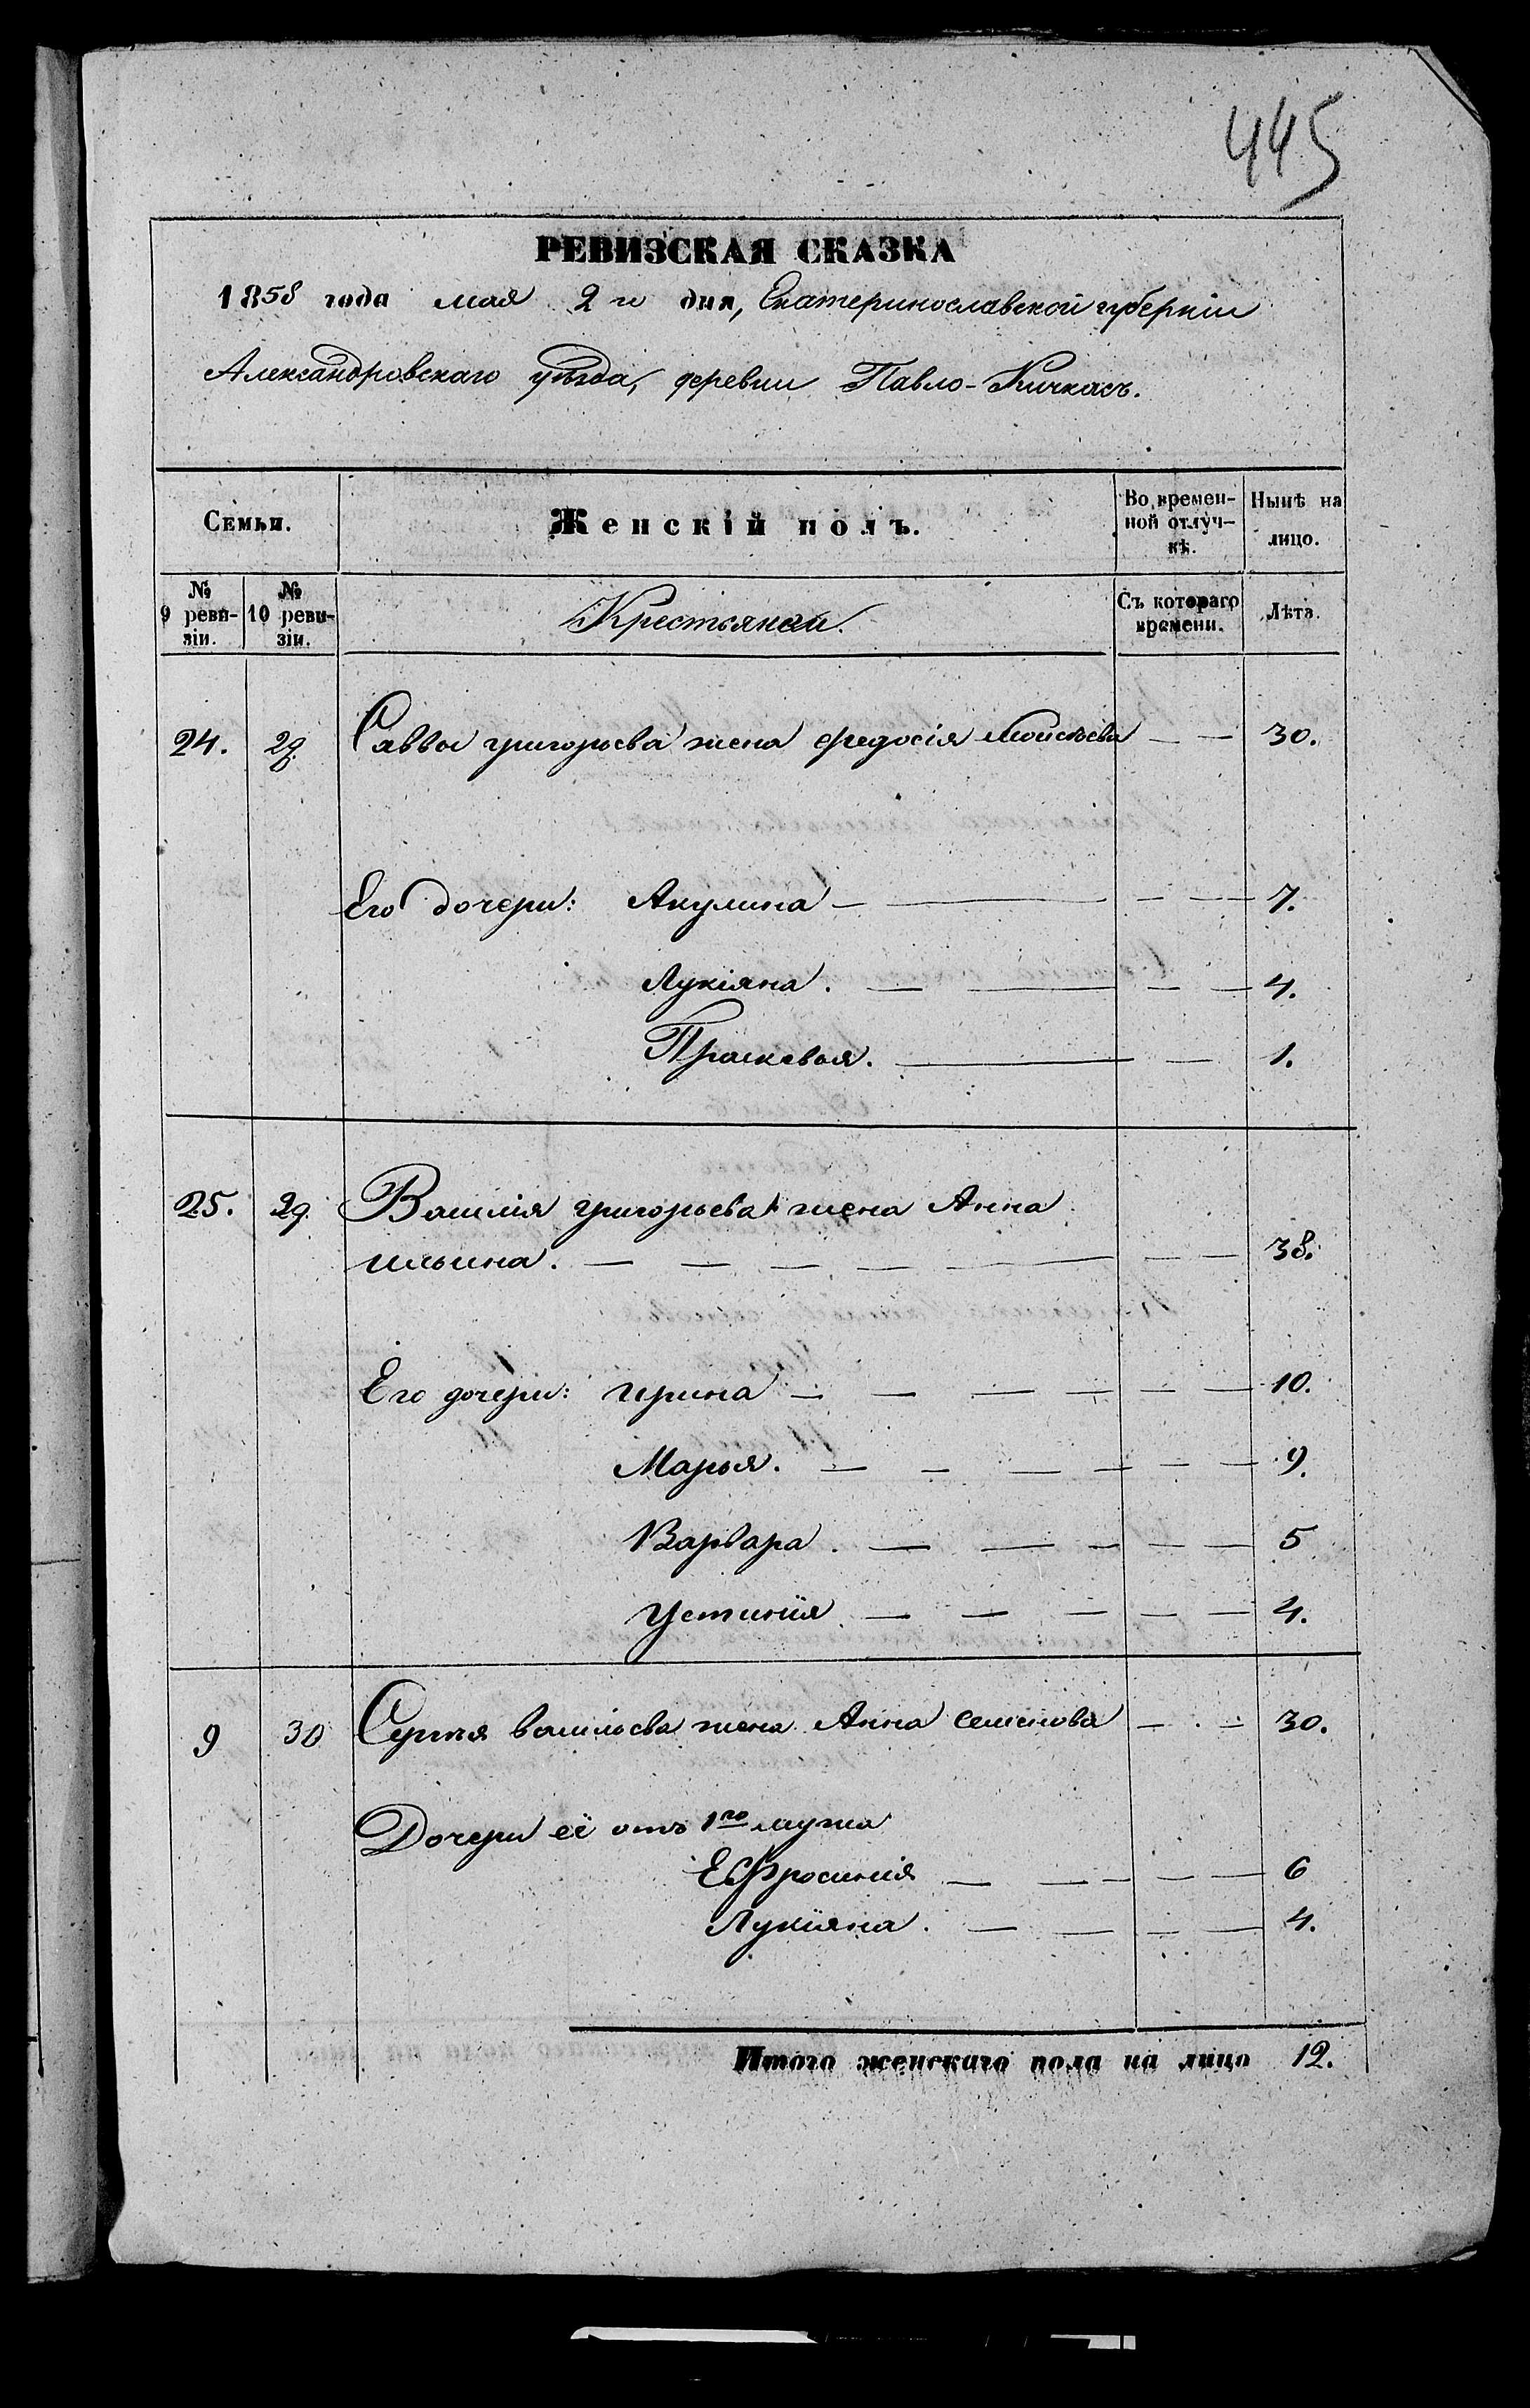 445
РЕВИЗСКАЯ СКАЗКА
1858 года мая 2го дня, Екатеринославской губерніи
Александровскаго уѣзда, деревни Павло-Кичкасъ.
Семьи. Женскій полъ. Во времен-ной отлуч-кѣ. Нынѣ на лицо.
№ 9 реви-зіи. № 10 реви-зіи. Крестьянки. Съ котораго времени. Лѣта.
24. 29. Саввы григорьева жена федосія Моисѣева — — 30.
Его дочери: Акулина — — — — 7.
Лукіяна. — — — — 4.
Прасковья. — — 1.
25. 29. Василія григорьева жена Анна
ильина. — — — — — — — 38.
Его дочери: ирина — — — — — — 10.
Марья. — — — — — — 9.
Варвара. — — — — — 5
Устинія — — — — — 4.
9 30 Сергѣя васильева жена Анна семенова — — 30.
Дочери её отъ 1го мужа
Ефросинія — — — — — 6
Лукіяна. — — — — 4.
Итого женскаго пола на лицо 12.